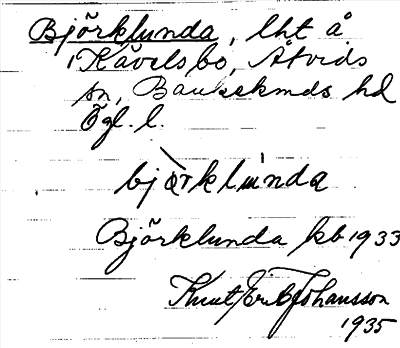 Björklunda, lht å
Kåvelsbo, Åtvids
sn, Bankekinds hd
Ögl. l.
bjòrklúnda
Björklunda kb 1933
Knut Erik Johansson
1935